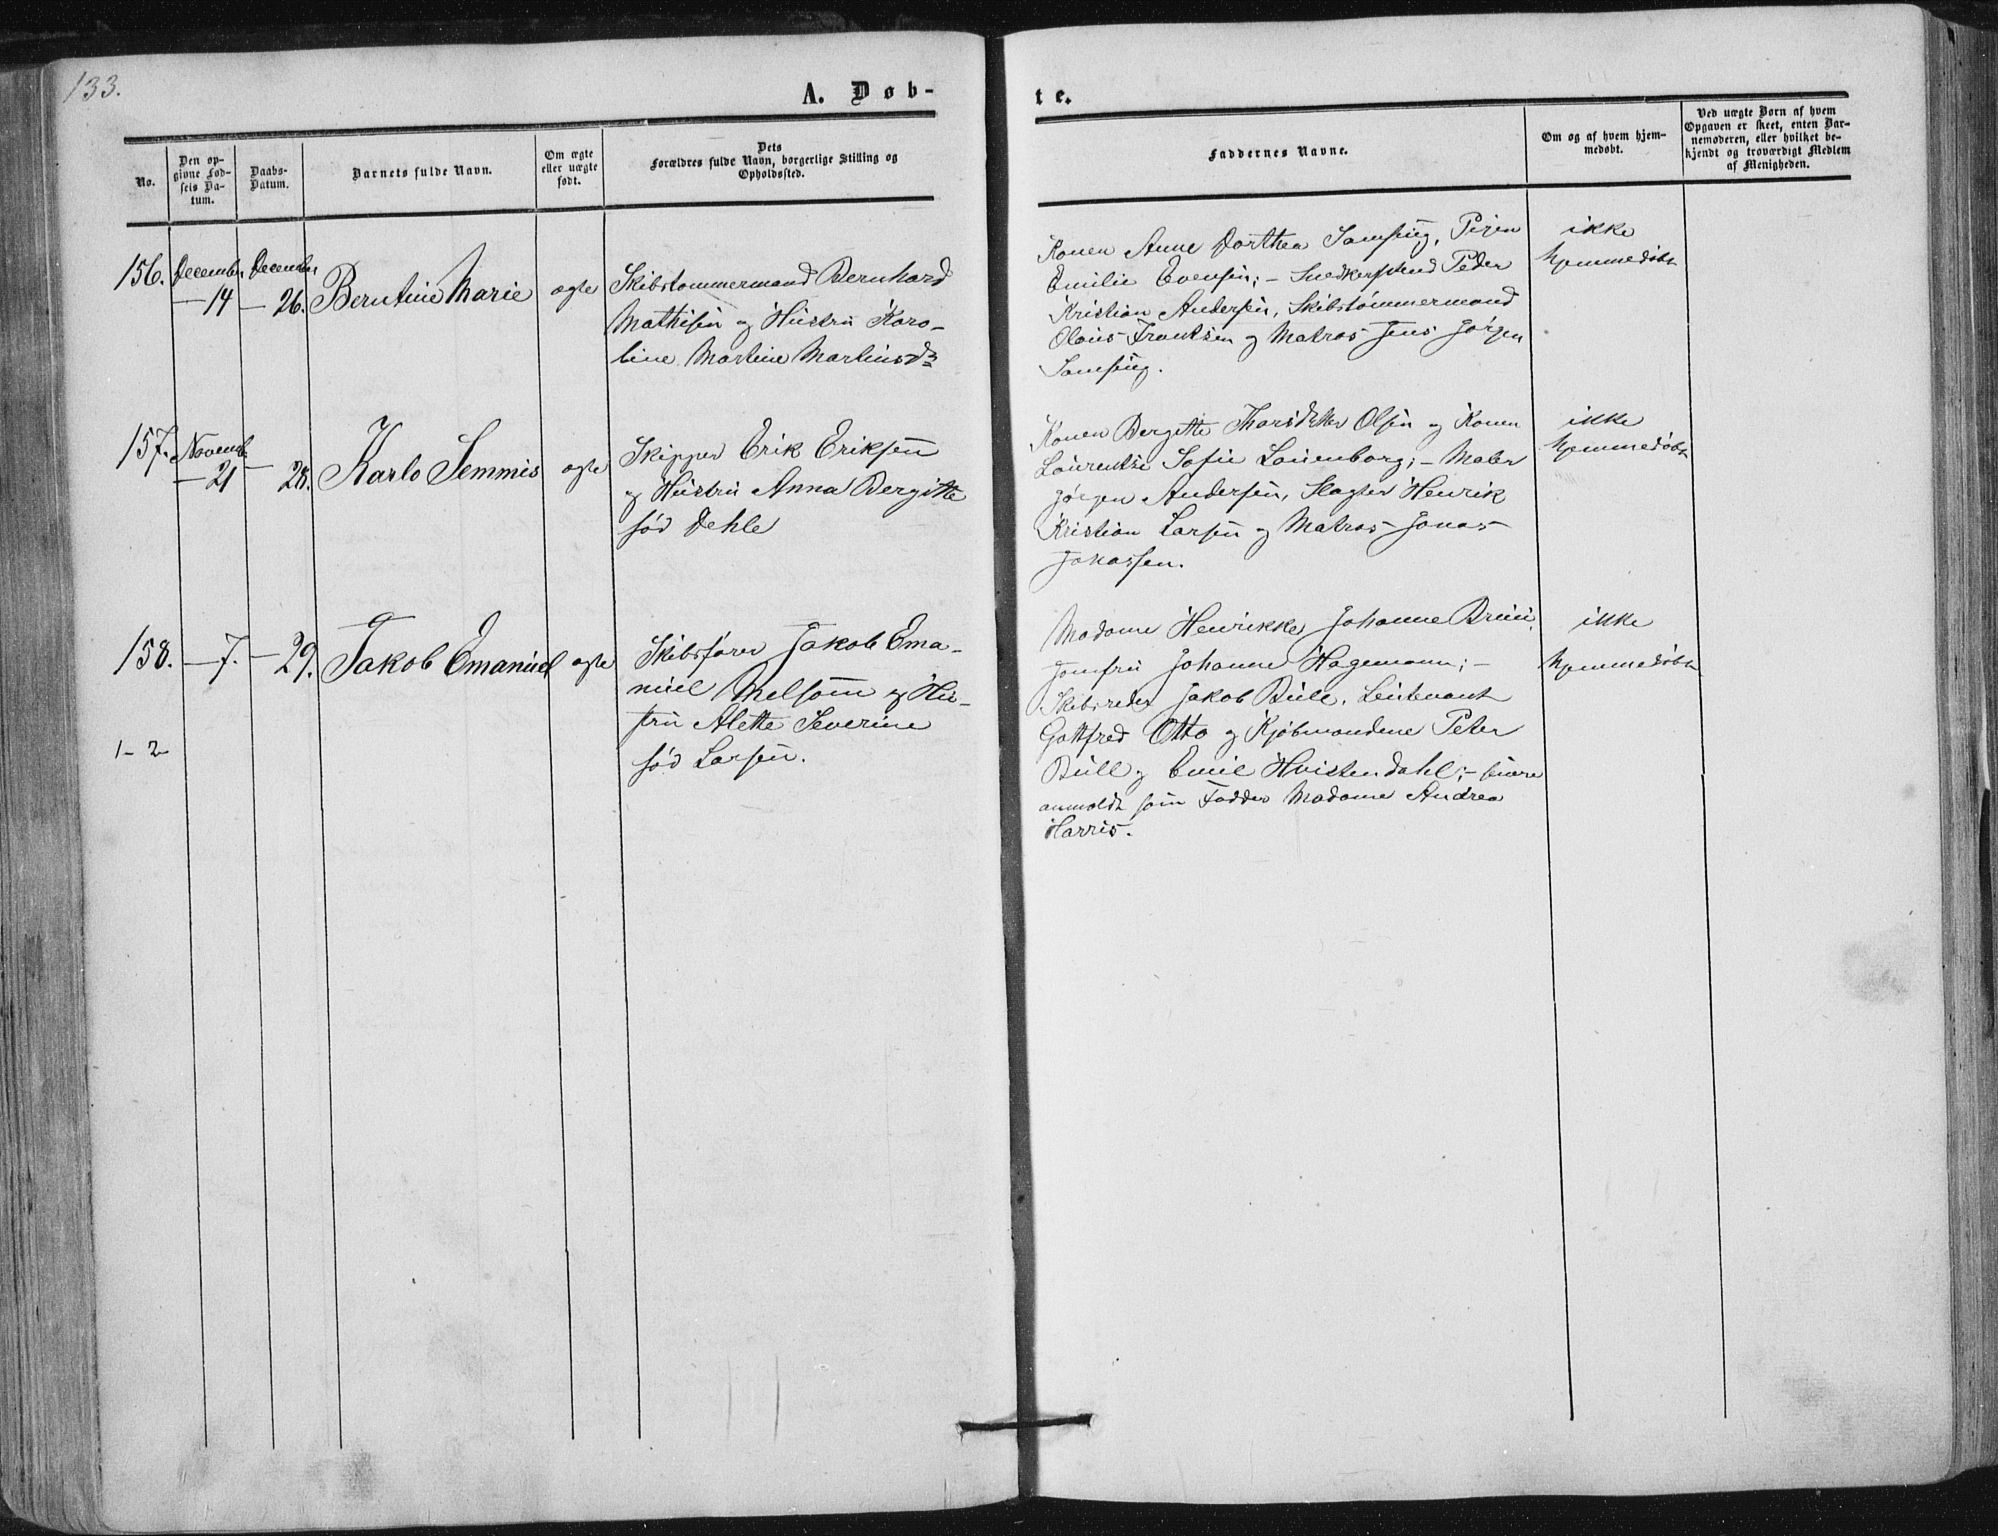 133.
A. Døb-
te.
No.
Den op-
givne Fød-
sels Da-
tum.
Daabs-
Datum.
Barnets fulde Navn.
Om ægte
eller uægte
født.
Dets
Forældres fulde Navn, borgerlige Stilling og
Opholdssted.
Faddernes Navne.
Om og af hvem hjem-
medøbt.
Ved uægte Børn af hvem
Opgaven er skeet, enten Bar-
nemoderen, eller hvilket be-
kjendt og troværdigt Medlem
af Menigheden.
156.
December
— 14
December
— 26.
Berntine Marie
ægte
Skibstømmermand Bernhard
Mathisen og Hustru Karo-
line Martine Martinsd.
Konen Anne Dorthea Pigen
Emilie Evensen; — Peder
Kristian Andersen, Skibstømmermand
Olaus Frantsen og Matros Jens Jørgen
ikke
hjemmedøbt
157.
Novemb.
— 21
— 28.
Karlo Semmes
ægte
Skipper Erik Eriksen
og Hustru Anna Bergitte
fød Dehle
Konen Bergitte Olsen og Konen
Sofie Lauenborg; — Maler
Jørgen Andersen, Slagter Henrik
Kristian Larsen og Matros Jonas
Jonassen.
ikke
hjemmedøbt
158.
— 7.
— 29.
Jakob Emanuel
ægte
Skibsfører Jakob Ema-
nuel Melsom og Hu-
stru Alette Severine
fød Larsen.
1-2
Madame Henrikke Johanne Bruun,
Jomfru Johanne Hagemann; —
Skibsreder Jakob Bull, Leutenant
Gottfred Otto og Kjøbmændene Peter
Bull og Emil Hvistendahl; —
anmeldt som Fadder Madame Andrea
Harris.
ikke
hjemmedøbt